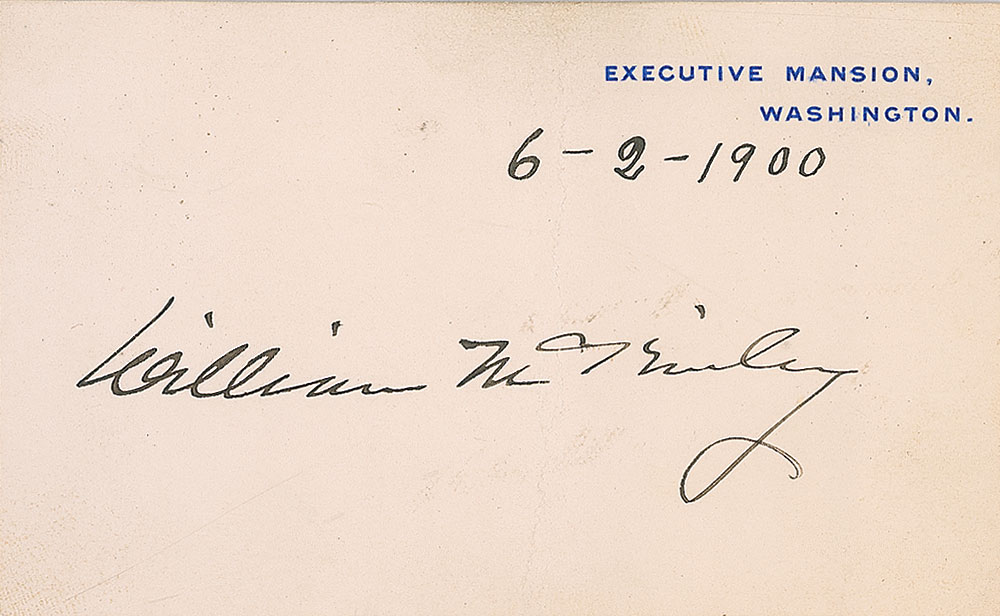 EXECUTIVE MANSION,
WASHINGTON.
6-2-1900
William McKinley